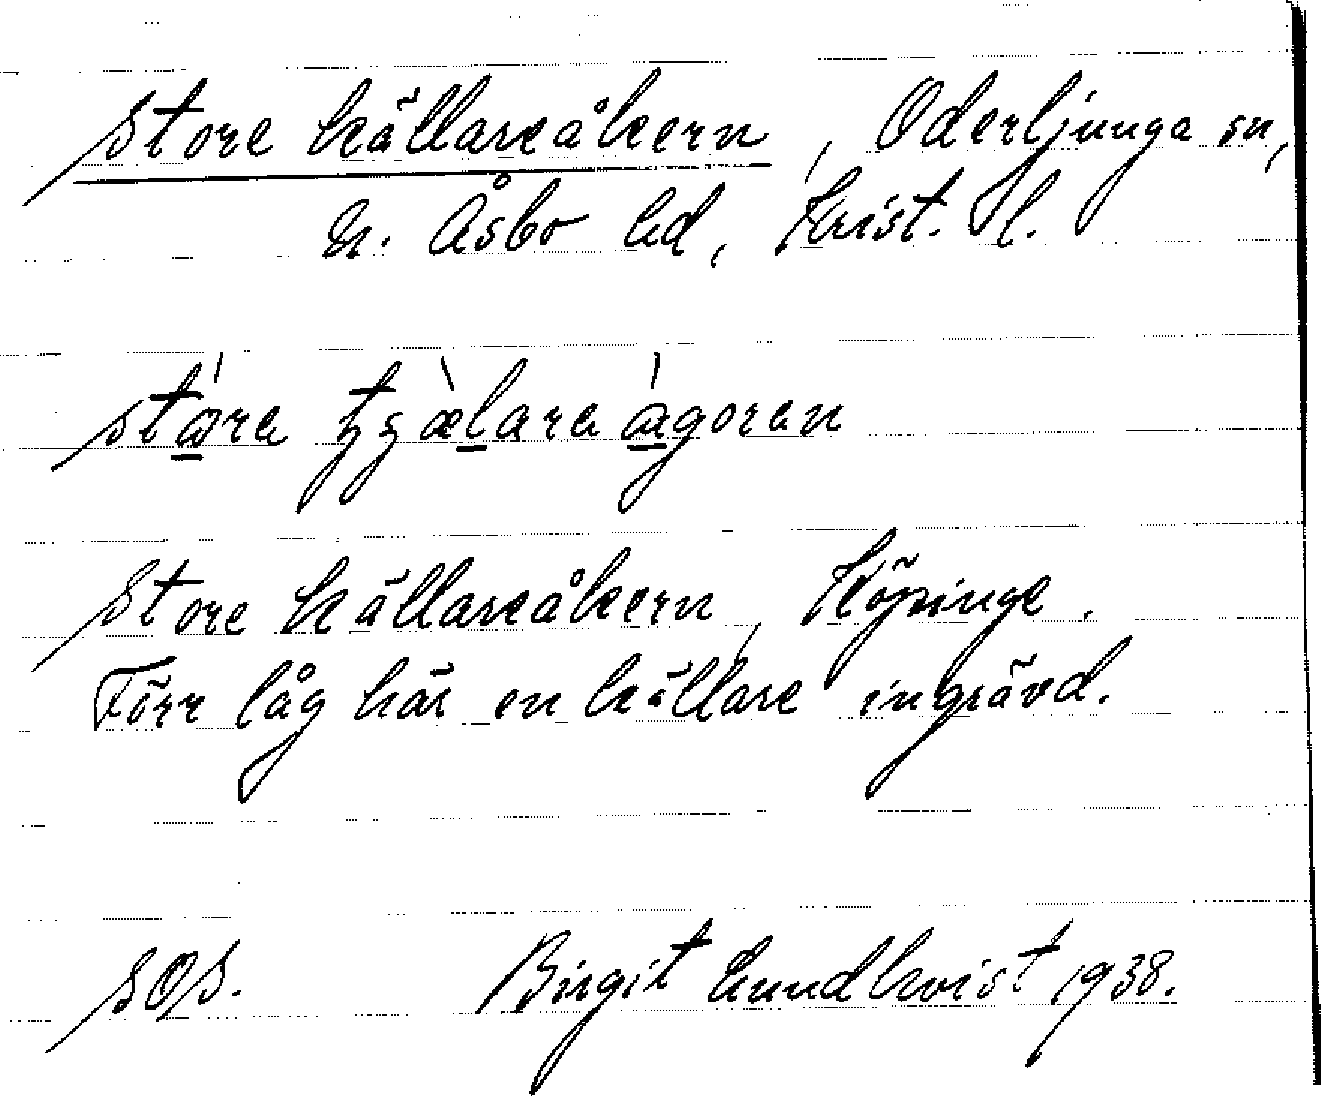 Store källareåkern, Oderljunga sn,
N. Åsbo hd, Krist. l.
Store källareåkern, Köpinge.
Förr låg här en källare ingrävd.
SOS. Birgit Lundkvist 1938.